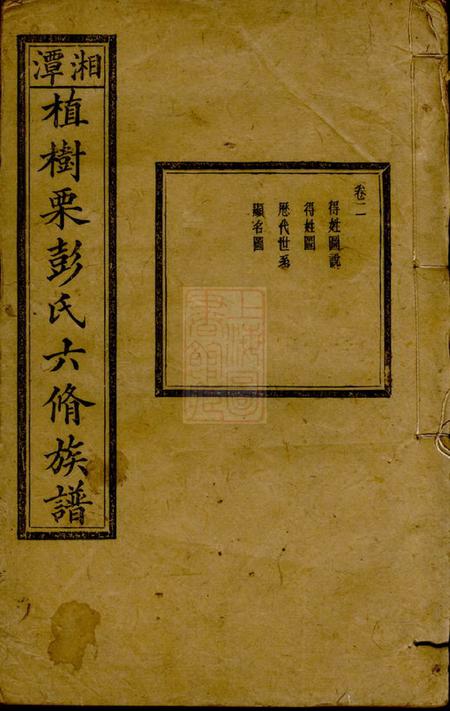 湘潭
植樹栗彭氏六脩族譜
卷二
得姓圖說
得姓圖
歷代世系
顯名圖
上海圖書館藏